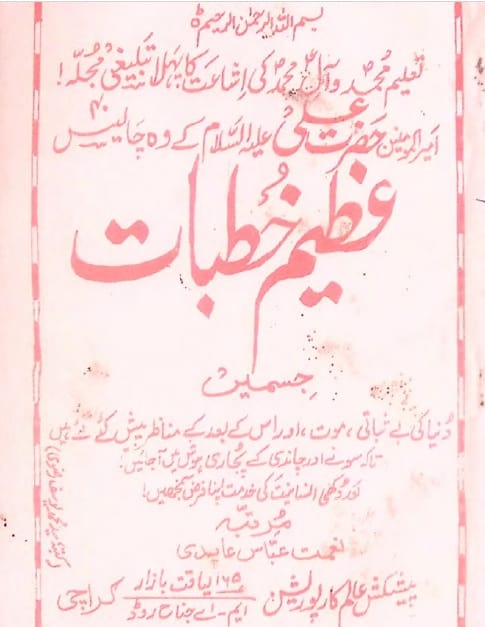 بسم اللہ الرحمٰن الرحیم ہ
تعلیم محمدؐ و آلِ محمدؐ کی اشاعت کا پہلا تبلیغی مجلّہ!
امیر المومنین حضرت علیؑ علیہ السّلام کے وہ چالیس ۴۰
عظیم خُطبات
جسمیں
دُنیا کی بے ثباتی، موت، اور اس کے بعد کے مناظر پیش کئے گئے ہیں
تاکہ سونے اور چاندی کے پجُاری ہوش میں آجائیں!
اور دُکھی انسانیت کی خدمت اپنا فرض سمجھیں!
مرتّبہ
نعمت عبّاس عابدی
پیشکش عالم کارپوریشن ۱۶۵ لیاقت بازار
ایم-اے جناح روڈ کراچی